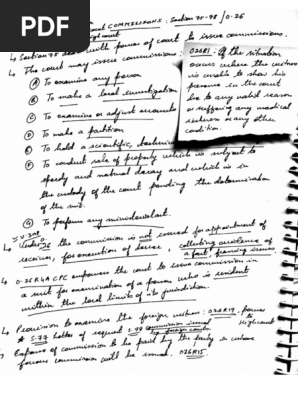 PDF
Court COMMISSIONS: Section 75-78 / O-26
High court
↳ Section 75 deals with power of court to issue commissions.
↳ The court may issue commissions:
(A) To examine any person
(B) To make a local investigation
(C) To examine or adjust accounts
(D) To make a partition
(E) To hold a scientific, technical
(F) To conduct sale of property which is subject to
speedy and natural decay and which is in
the custody of the court pending the determination
of the suit.
(G) To perform any ministerial act.
O26R1: If the situation
occurs where the witness
is unable to show his
presence in the court
due to any valid reason
or suffering any medical
sickness or any other
condition.
↳ Under the commission is not issued for appointment of
receiver, for execution of decree, collecting evidence of
a fact,
↳ O.26R4A CPC empowers the court to issue commission in
a suit for examination of a person who is resident
within the local limits of its jurisdiction.
↳ Provision to examine the foreign witness: O26R19. power
to High court
* S.77 letter of request S.78 commission issued
by foreign courts
Expense of commission to be paid by the party in whose
favour commission will be issued. O26R15